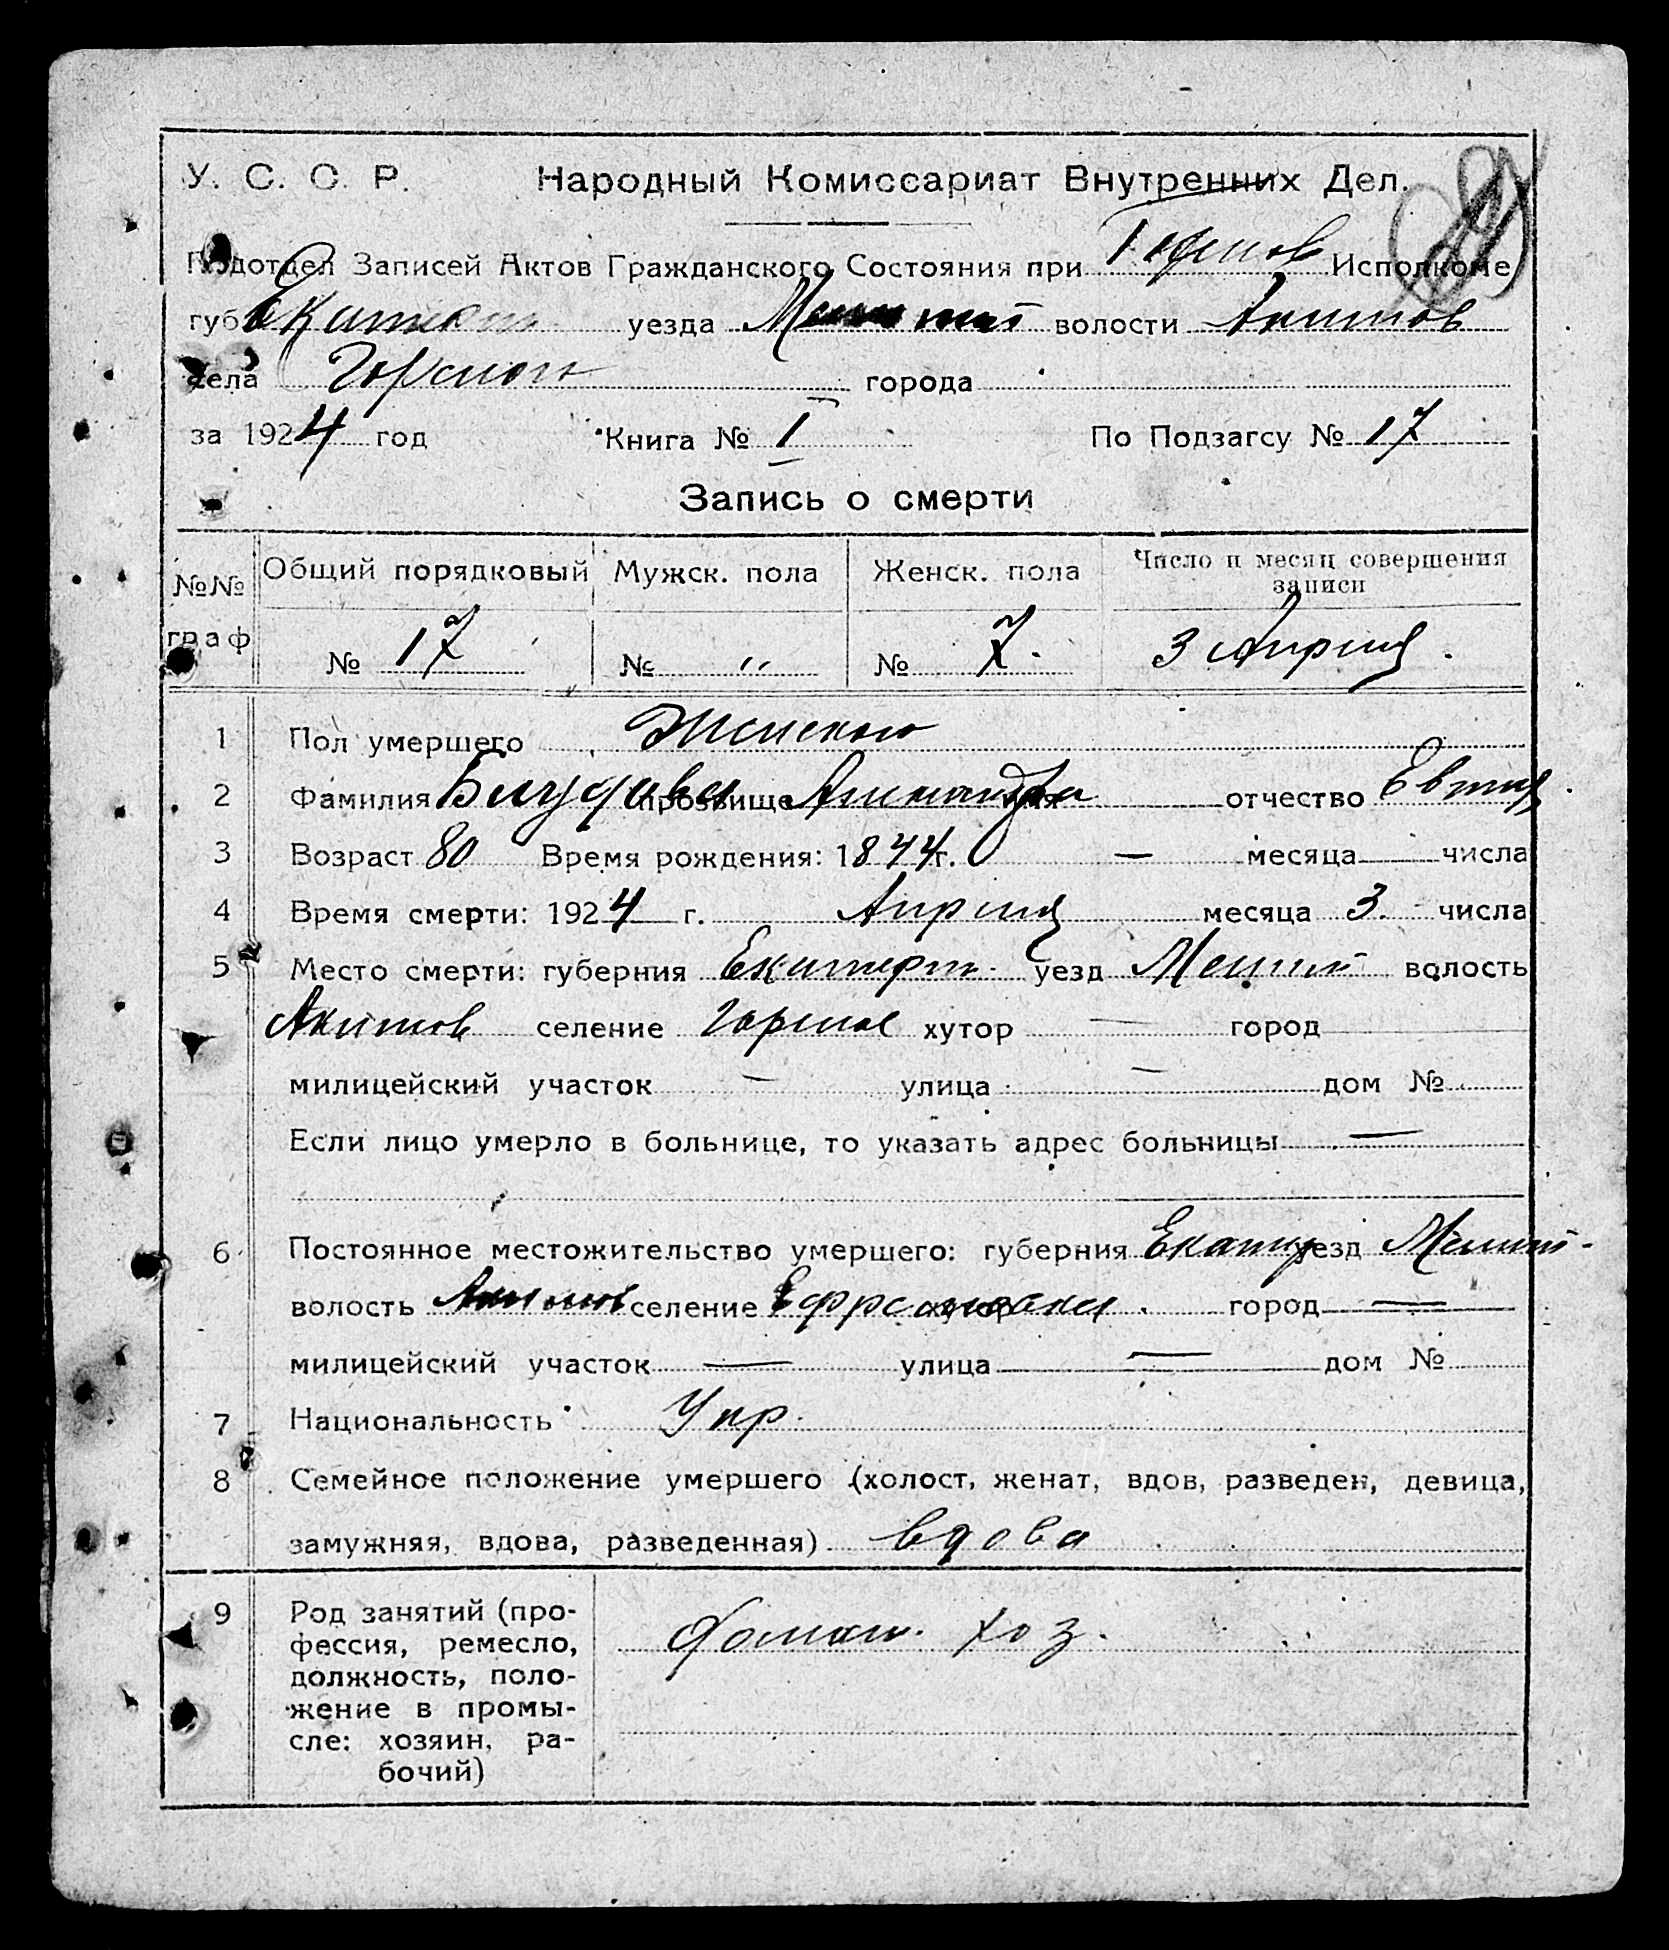 У. С. С. Р. Народный Комиссариат Внутренних Дел.
Подотдел Записей Актов Гражданского Состояния при Исполкоме
губ. уезда волости Акимов
села города
за 1924 год Книга № I По Подзагсу № 17
Запись о смерти
№№ граф Общий порядковый Мужск. пола Женск. пола Число и месяц совершения записи
№ 17 № " № 7. 3 Апреля.
1 Пол умершего Женского
2 Фамилия прозвище имя отчество
3 Возраст 80 Время рождения: 1844 г. — месяца числа
4 Время смерти: 1924 г. Апреля месяца 3. числа
5 Место смерти: губерния уезд Мелит волость
Акимов селение хутор — город
милицейский участок — улица — дом №
Если лицо умерло в больнице, то указать адрес больницы —
6 Постоянное местожительство умершего: губерния Екатер уезд Мелит-
волость Акимов селение хутор город —
милицейский участок — улица — дом №
7 Национальность Укр.
8 Семейное положение умершего (холост, женат, вдов, разведен, девица,
замужняя, вдова, разведенная) вдова
9 Род занятий (про-
фессия, ремесло,
должность, поло-
жение в промы-
сле: хозяин, ра-
бочий)
домаш. хоз.